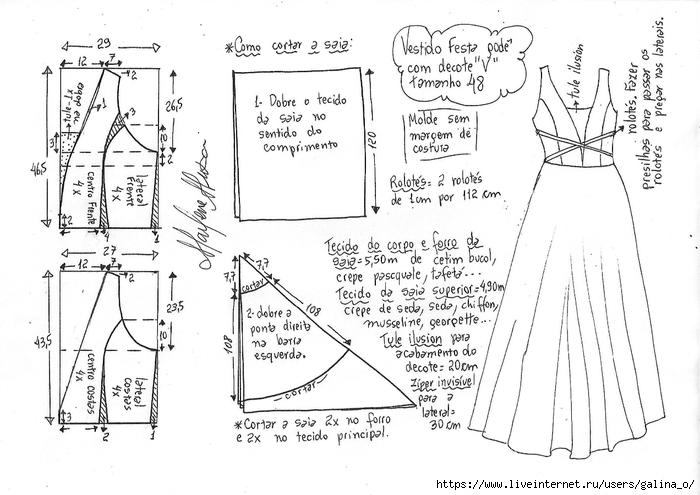 29
12
7
2
1
3
26,5
10
2
46,5
centro Frente
4x
lateral
Frente
4x
2
4
1
27
12
7
2
23,5
10
43,5
centro costas
4x
lateral
costas
4x
3
2
1
*Como cortar a saia:
1- Dobre o tecido
da saia no
sentido do
comprimento
120
7,7
7,7
cortar
108
108
2- dobre a
ponta direita
na barra
esquerda.
cortar
*Cortar a saia 2x no forro
e 2x no tecido principal.
Vestido Festa
com decote "V"
tamanho 48
Molde sem
margem de
costura
Rolotés = 2 rolotés
de 1cm por 112 cm
Tecido do corpo e forro da
saia = 5,50m de cetim bucol,
crepe pasquale, tafetá...
Tecido da saia superior = 4,90m
crepe de seda, seda, chiffon,
musseline, georgette...
Tule ilusion para
acabamento do
decote = 20cm
Zíper invisível
para a
lateral =
30 cm
tule ilusion
rolotés. Fazer
presilhas para passar os
rolotés e pregar nas laterais.
https://www.liveinternet.ru/users/galina_o/